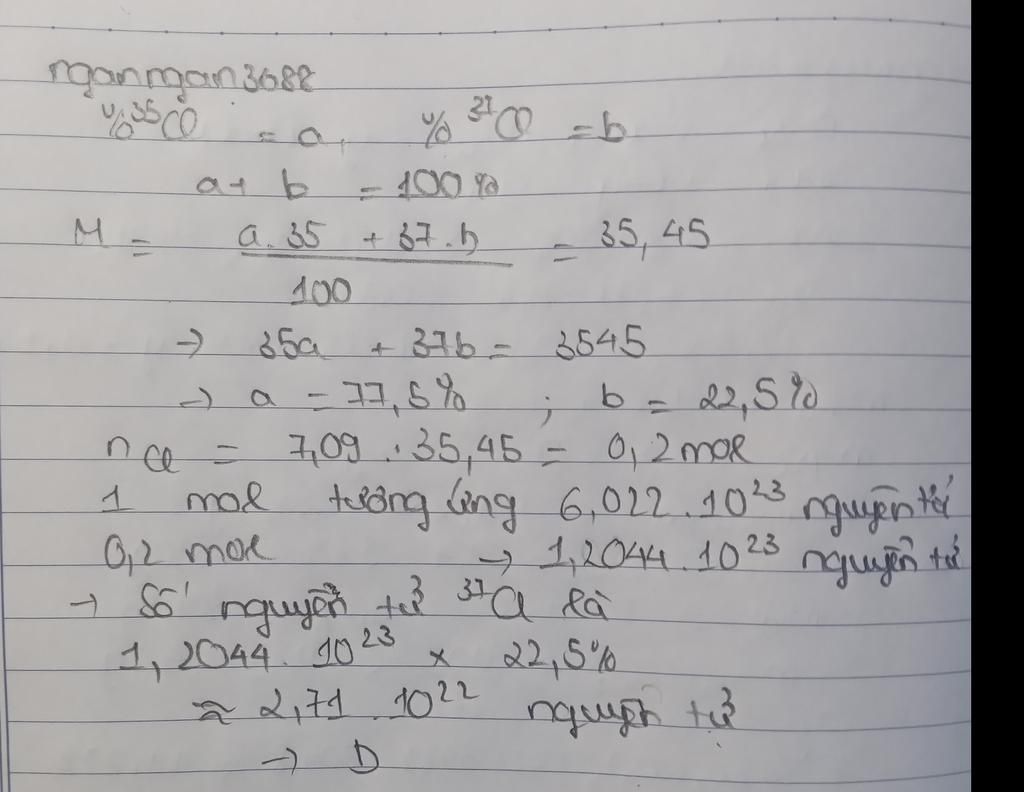 nganngan3688
%³⁵Cl = a, % ³⁷Cl = b
a + b = 100%
M = (a.35 + 37.b) / 100 = 35,45
→ 35a + 37b = 3545
→ a = 77,5% ; b = 22,5%
nCl = 7,09 : 35,45 = 0,2 mol
1 mol tương ứng 6,022.10²³ nguyên tử
0,2 mol → 1,2044.10²³ nguyên tử
→ Số nguyên tử ³⁷Cl là
1,2044.10²³ x 22,5%
≈ 2,71.10²² nguyên tử
→ D